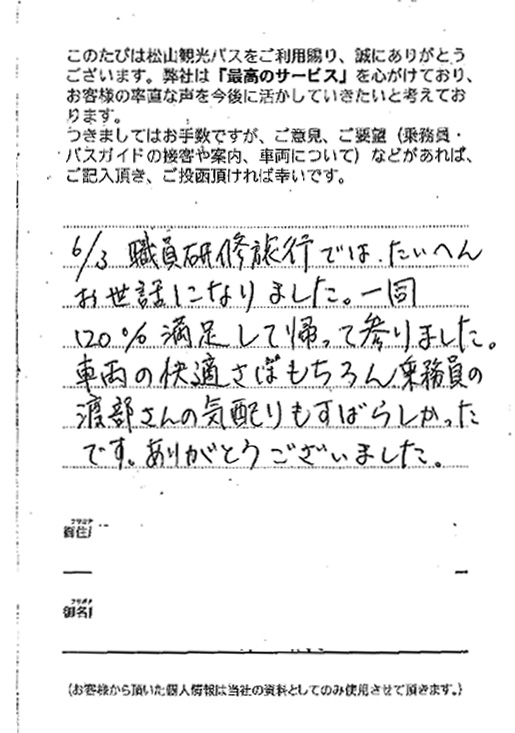 このたびは松山観光バスをご利用賜り、誠にありがとう
ございます。弊社は『最高のサービス』を心がけており、
お客様の率直な声を今後に活かしていきたいと考えてお
ります。
つきましてはお手数ですが、ご意見、ご要望（乗務員・
バスガイドの接客や案内、車両について）などがあれば、
ご記入頂き、ご投函頂ければ幸いです。
6/3 職員研修旅行では、たいへん
お世話になりました。一同
120%満足して帰って参りました。
車両の快適さはもちろん、乗務員の
渡部さんの気配りもすばらしかった
です。ありがとうございました。
フリガナ
御住
フリガナ
御名
（お客様から頂いた個人情報は当社の資料としてのみ使用させて頂きます。）